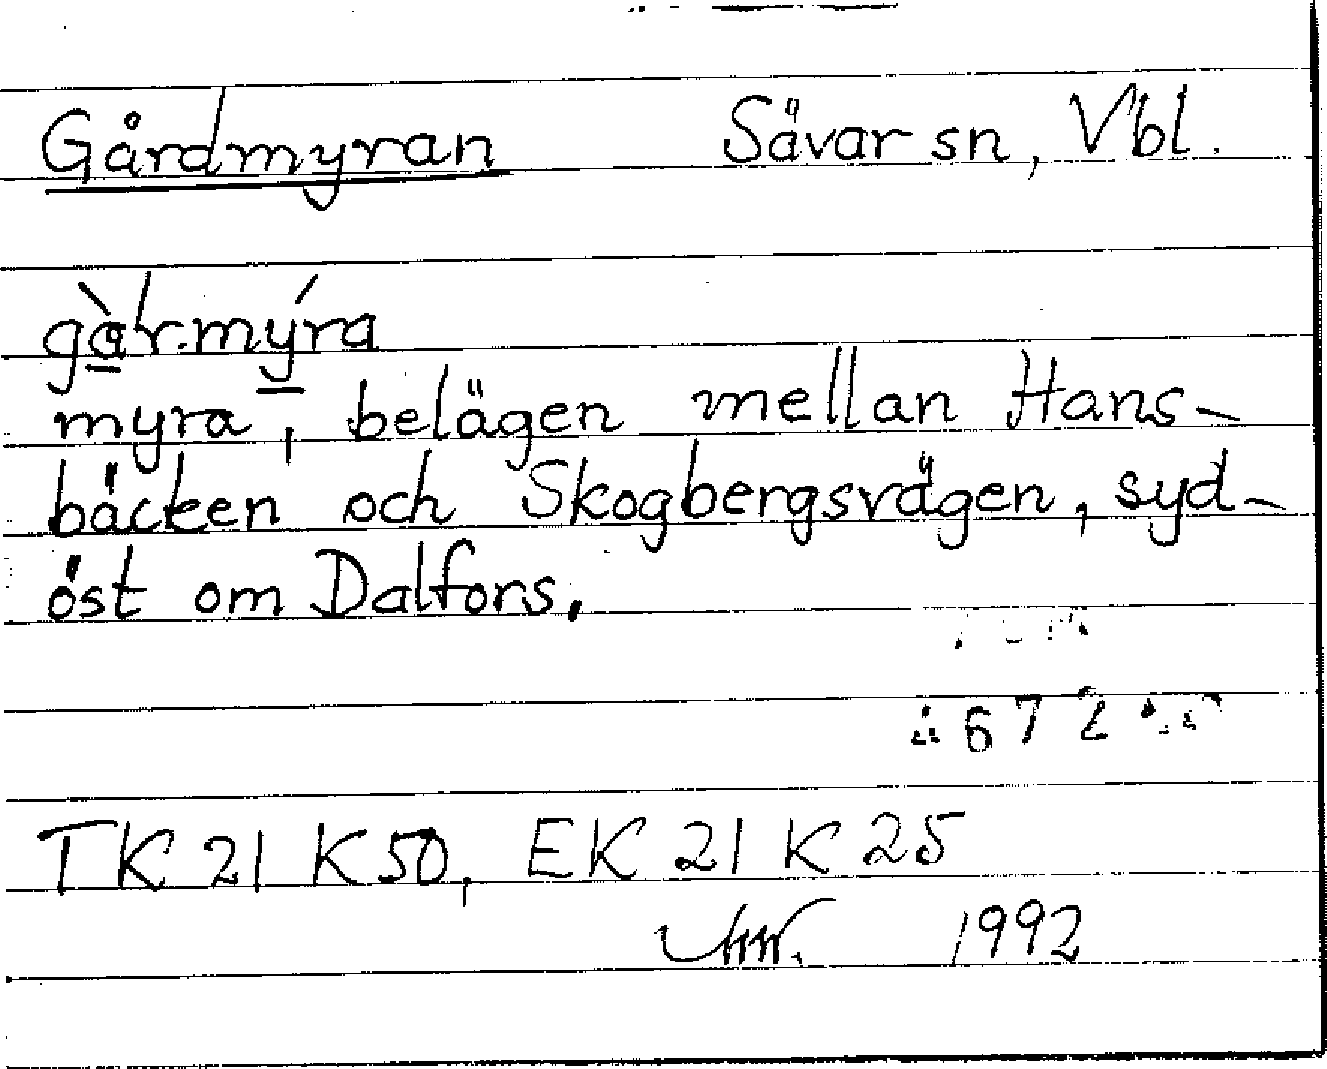 Gårdmyran Sävar sn, Vbl.
gà̱r.mý̱ra
myra, belägen mellan Hans-
bäcken och Skogbergsvägen, syd-
öst om Dalfors.
672
TK 21 K 50, EK 21 K 25
1992